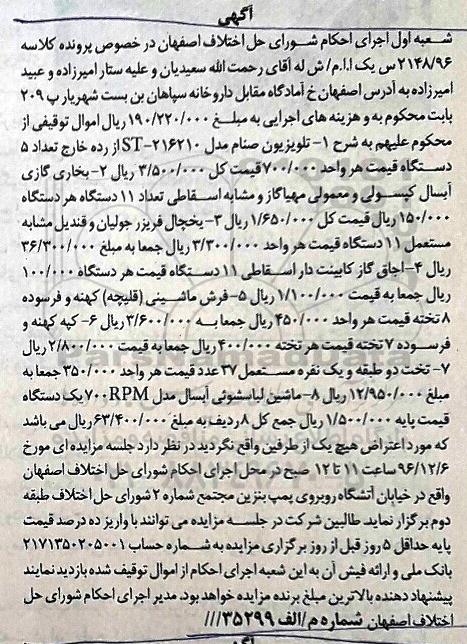 آگهی
شعبه اول اجرای احکام شورای حل اختلاف اصفهان در خصوص پرونده کلاسه
۲۱۴۸/۹۶ س یک ا.ا.م/ ش له آقای رحمت الله سعیدیان و علیه ستار امیرزاده و عبید
امیرزاده به آدرس اصفهان خ آمادگاه مقابل داروخانه سپاهان بن بست شهریار پ ۲۰۹
بابت محکوم به و هزینه های اجرایی به مبلغ ۱۹۰/۲۲۰/۰۰۰ ریال اموال توقیفی از
محکوم علیهم به شرح ۱- تلویزیون صنام مدل ST-۲۱۶۲۱۰ از رده خارج تعداد ۵
دستگاه قیمت هر واحد ۷۰۰/۰۰۰ قیمت کل ۳/۵۰۰/۰۰۰ ریال ۲- بخاری گازی
آبسال کپسولی و معمولی مهیاگاز و مشابه اسقاطی تعداد ۱۱ دستگاه هر دستگاه
۱۵۰/۰۰۰ ریال قیمت کل ۱/۶۵۰/۰۰۰ ریال ۳- یخچال فریزر جولیان و قندیل مشابه
مستعمل ۱۱ دستگاه قیمت هر واحد ۳/۳۰۰/۰۰۰ ریال جمعا به مبلغ ۳۶/۳۰۰/۰۰۰
ریال ۴- اجاق گاز کابینت دار اسقاطی ۱۱ دستگاه قیمت هر دستگاه ۱۰۰/۰۰۰
ریال جمعا به قیمت ۱/۱۰۰/۰۰۰ ریال ۵- فرش ماشینی (قلیچه) کهنه و فرسوده
۸ تخته قیمت هر واحد ۴۵۰/۰۰۰ ریال جمعا به ۳/۶۰۰/۰۰۰ ریال ۶- کپه کهنه و
فرسوده ۷ تخته قیمت هر تخته ۴۰۰/۰۰۰ ریال جمعا به قیمت ۲/۸۰۰/۰۰۰ ریال
۷- تخت دو طبقه و یک نفره مستعمل ۳۷ عدد قیمت هر واحد ۳۵۰/۰۰۰ جمعا به
مبلغ ۱۲/۹۵۰/۰۰۰ ریال ۸- ماشین لباسشوئی آبسال مدل ۷۰۰RPM یک دستگاه
قیمت پایه ۱/۵۰۰/۰۰۰ ریال جمع کل ۸ ردیف به مبلغ ۶۳/۴۰۰/۰۰۰ ریال می باشد
که مورد اعتراض هیچ یک از طرفین واقع نگردید در نظر دارد جلسه مزایده ای مورخ
۹۶/۱۲/۶ ساعت ۱۱ تا ۱۲ صبح در محل اجرای احکام شورای حل اختلاف اصفهان
واقع در خیابان آتشگاه روبروی پمپ بنزین مجتمع شماره ۲ شورای حل اختلاف طبقه
دوم برگزار نماید. طالبین شرکت در جلسه مزایده می توانند با واریز ده درصد قیمت
پایه حداقل ۵ روز قبل از روز برگزاری مزایده به شماره حساب ۲۱۷۱۳۵۰۲۰۵۰۰۱
بانک ملی و ارائه فیش آن به این شعبه اجرای احکام از اموال توقیف شده بازدید نمایند
پیشنهاد دهنده بالاترین مبلغ برنده مزایده خواهد بود. مدیر اجرای احکام شورای حل
اختلاف اصفهان شماره م/الف ۳۵۲۹۹///